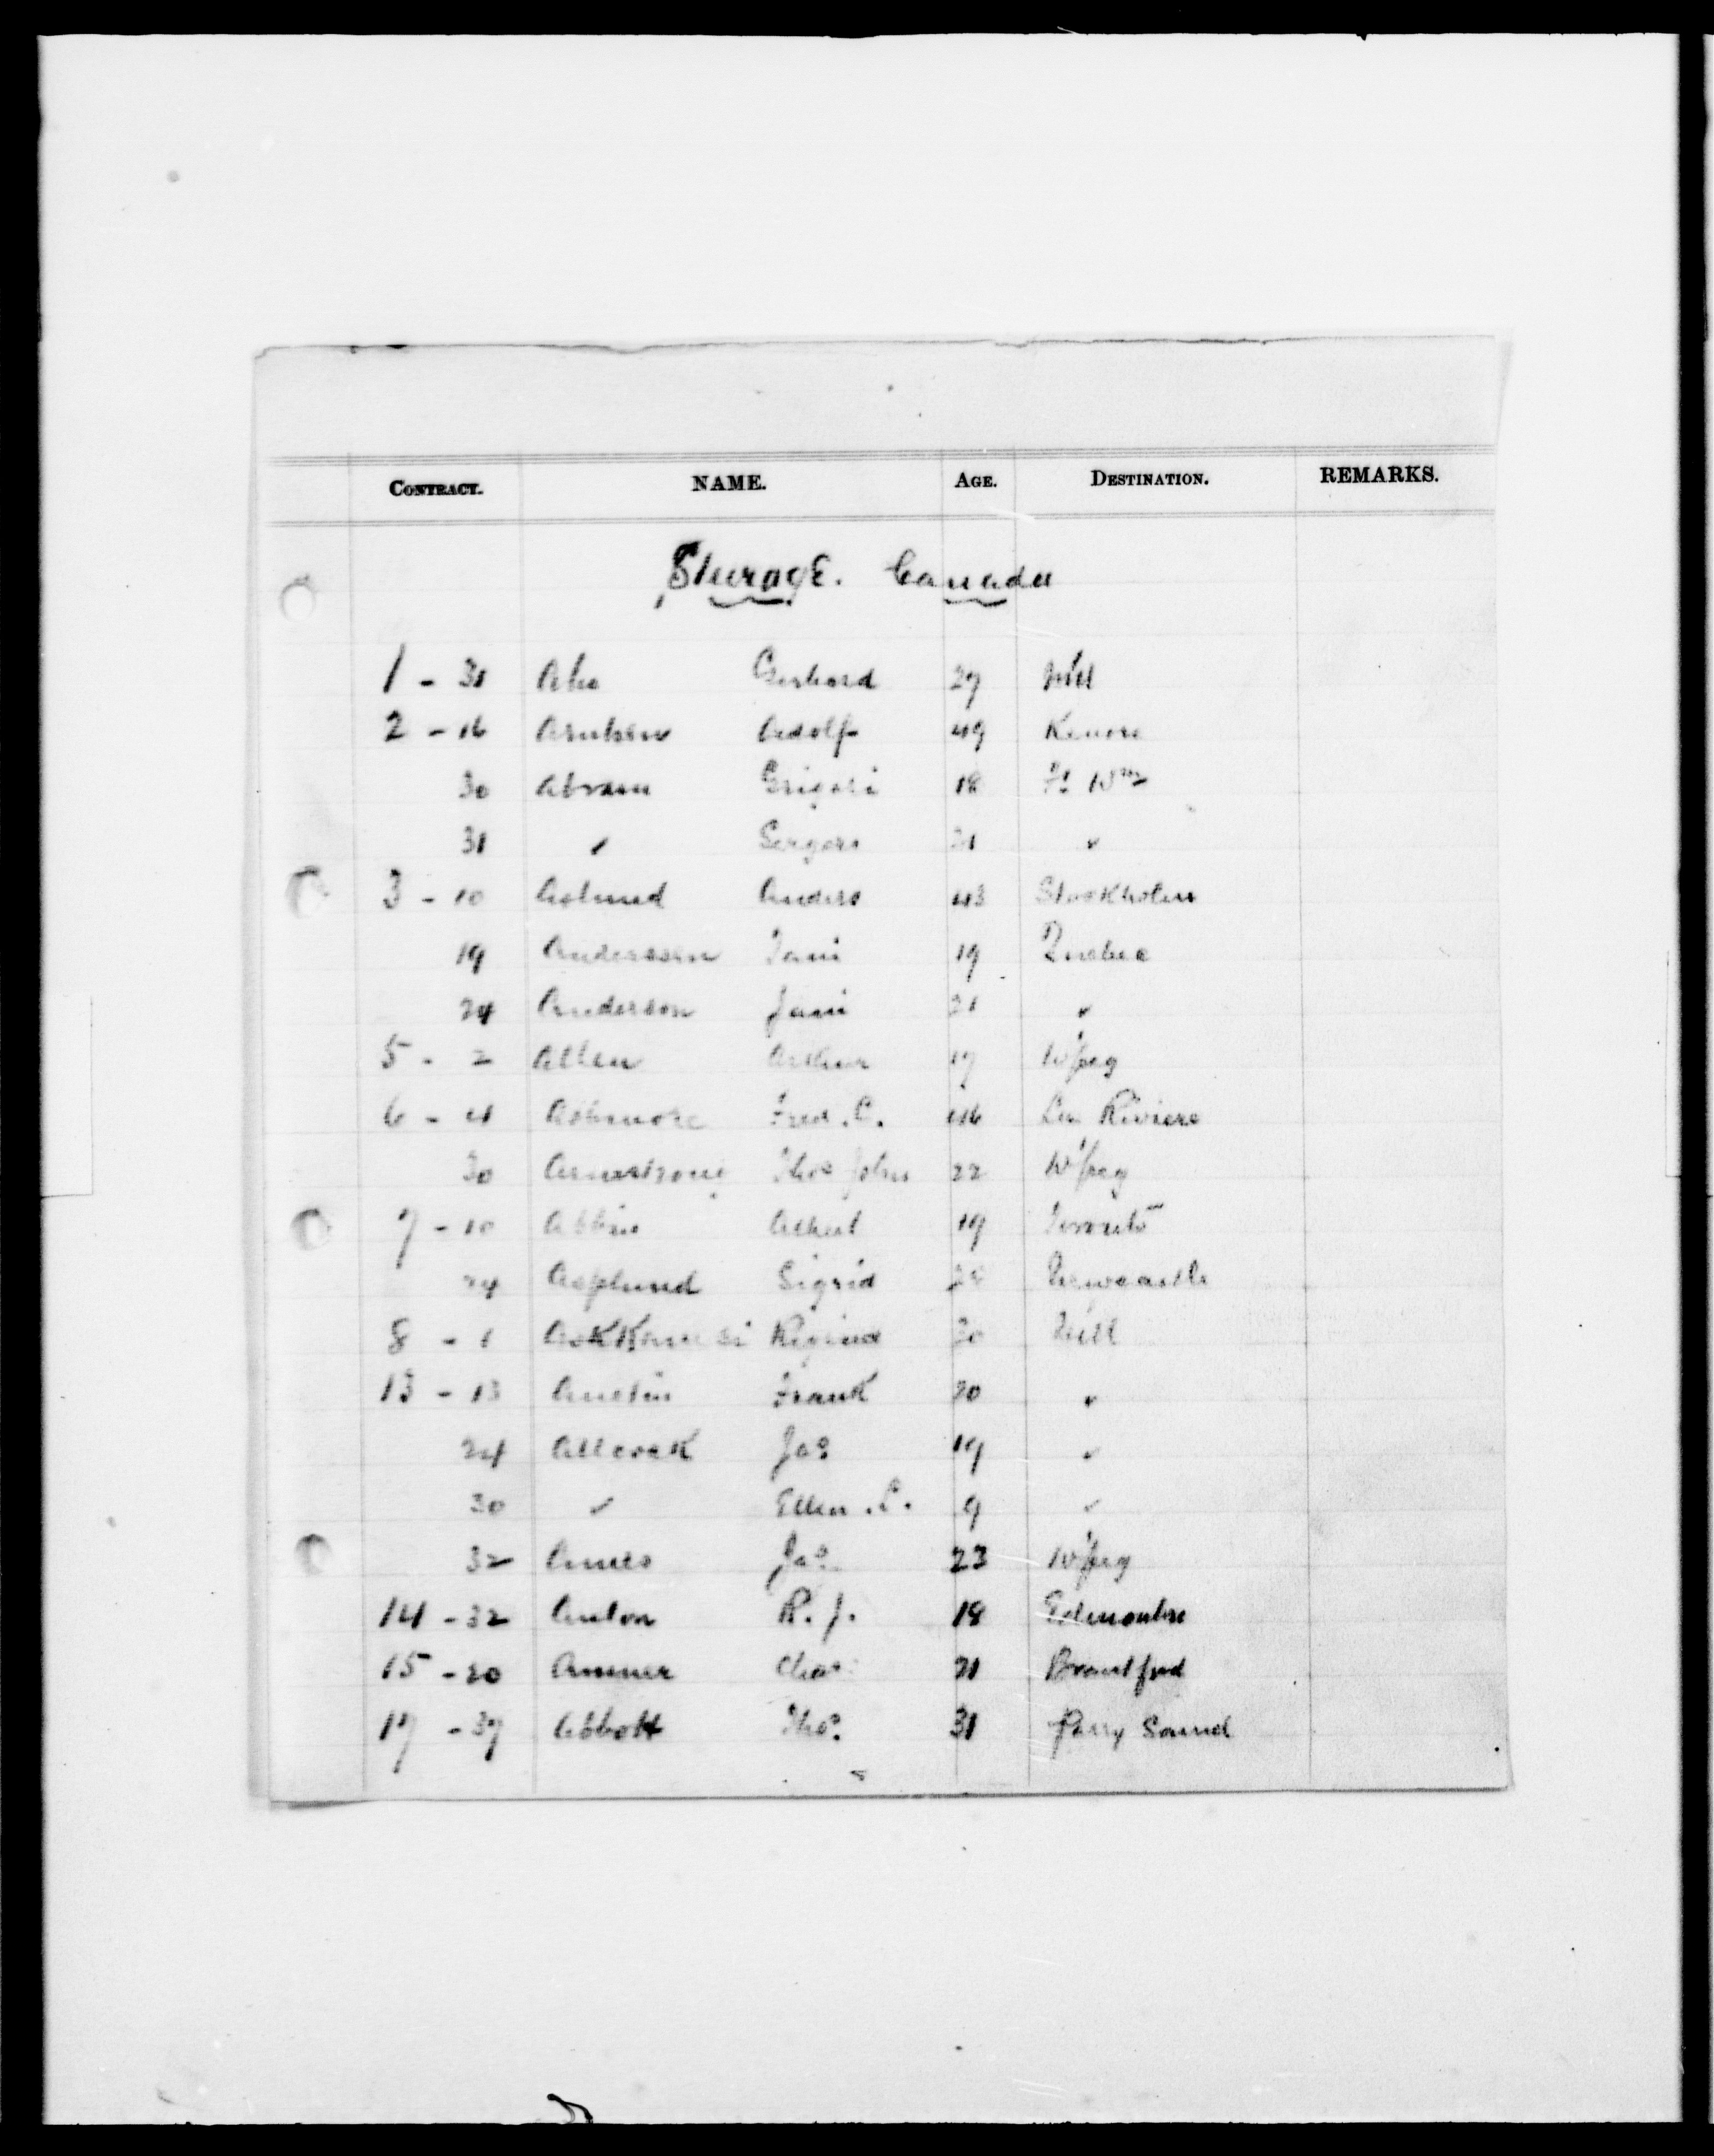 CONTRACT. NAME. AGE. DESTINATION. REMARKS.
Steerage. Canada
1 - 31 Aho Gerhard 29 M'tl
2 - 16 Adolf 49 Kenora
30 Abram Grigori 18 Ft Wm
31 " 21 "
3 - 10 Aslund Anders 43 Stockholm
19 Anderssen Jani 19 Quebec
24 Anderson Jani 21 "
5 - 2 Allen Arthur 19 W'peg
6 - 4 Ashmore Fred. C. 46 La Riviere
30 Armstrong Thos John 22 W'peg
7 - 10 Albert 19 Toronto
24 Asplund Sigrid 28 Newcastle
8 - 1 30 M'tl
13 - 13 Austin Frank 20 "
24 Allcock Jas 19 "
30 " Ellen. L. 9 "
32 Ames Jas 23 W'peg
14 - 32 Anton R. J. 18 Edmonton
15 - 20 Ammer Chas 21 Brantford
17 - 37 Abbott Thos. 31 Parry Sound